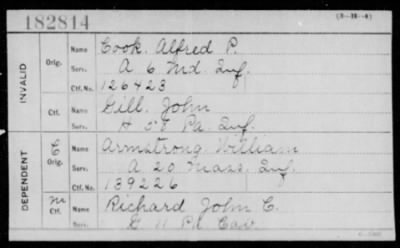 182814
(3-21-4)
INVALID
Orig.
Name Cook. Alfred P.
Serv. A 6 Md. Inf.
Ctf. No. 126423
Ctf.
Name Gill. John
Serv. H 58 Pa. Inf.
DEPENDENT
C
Orig.
Name Armstrong. William
Serv. A 20 Mass. Inf.
Ctf. No. 139226
M
Ctf.
Name Richard John C.
Serv. G 11 Pa Cav.